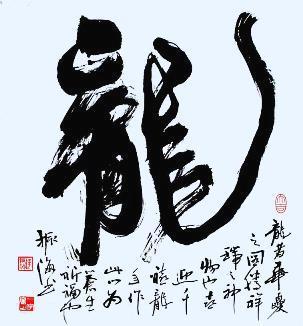 龍
龍者華夏
之圖騰祥
瑞之神
物也喜
迎千
禧龍
年作
此為
蒼生
祈福也
振海書